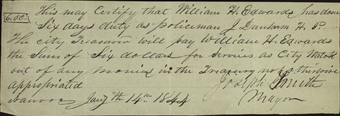 This may certify that William H. Edwards has done
6.00 Six days duty as policeman J Dunham H. P.
The city Treasurer will pay William H. Edwards
the Sum of Six dollars for services as City Watch
out of any monies in the Treasury not otherwise
appropriated
Joseph Smith
Nauvoo Jany 14th 1844
Mayor